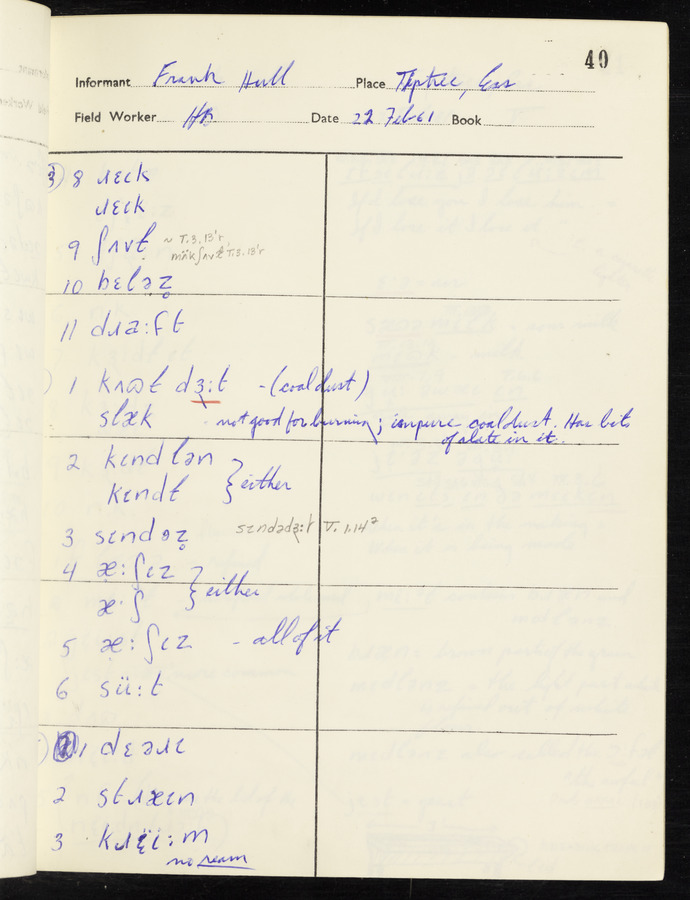 40
Informant Frank Hull Place Tiptree, Ess
Field Worker HB Date 22 Feb 61 Book
3) 8 ɹɛck
ɹɛck
9 ʃʌvɫ ~ V.3.13'r
mʌ̈kʃʌvɫ V.3.13'r
10 bɛləz̥
11 dɹɑ:ft
) 1 kʌɷɫ dɜ:t - (coal dust)
slæk - not good for burning; impure coal dust. Has bits
of slate in it.
2 kɪndlən
kɪndɫ } either
3 sɪndəz̥ sɪndədɜ:t V.1.14²
4 æ:ʃɪz
æ·ʃ } either
5 æ:ʃɪz - all of it
6 sü:t
) 1 dɛəɹɪ
2 stɹæɪn
3 kɹɪ̈:m
no ream